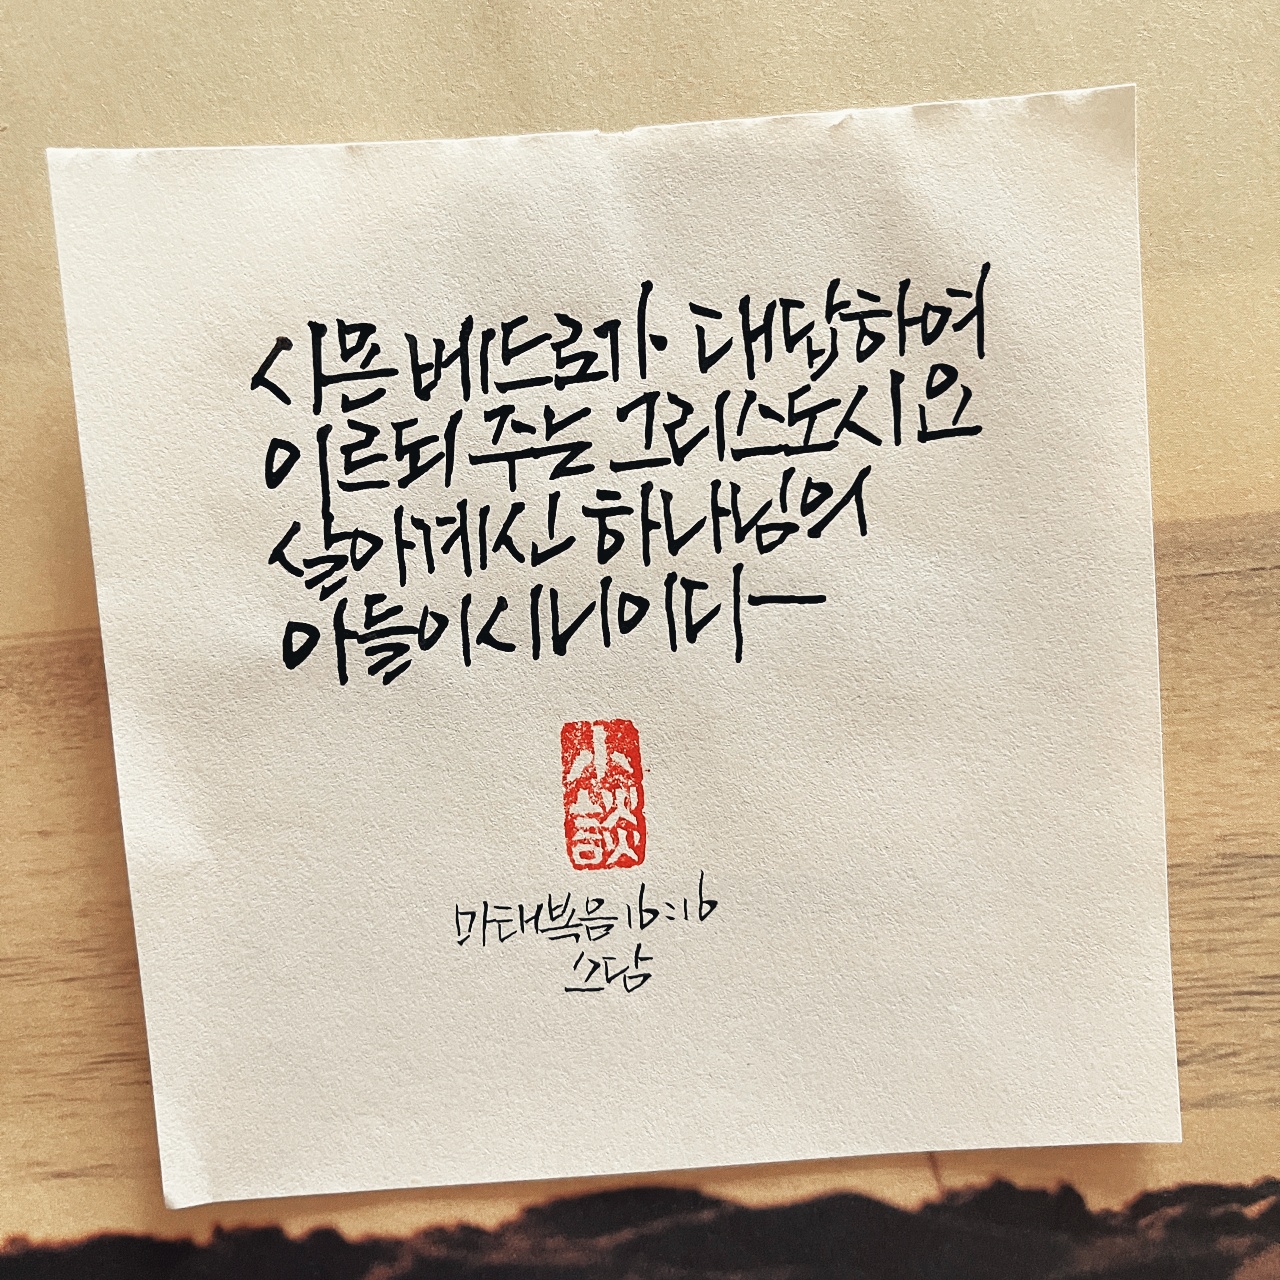 시몬 베드로가 대답하여
이르되 주는 그리스도시요
살아계신 하나님의
아들이시니이다
小
談
마태복음 16:16
소담